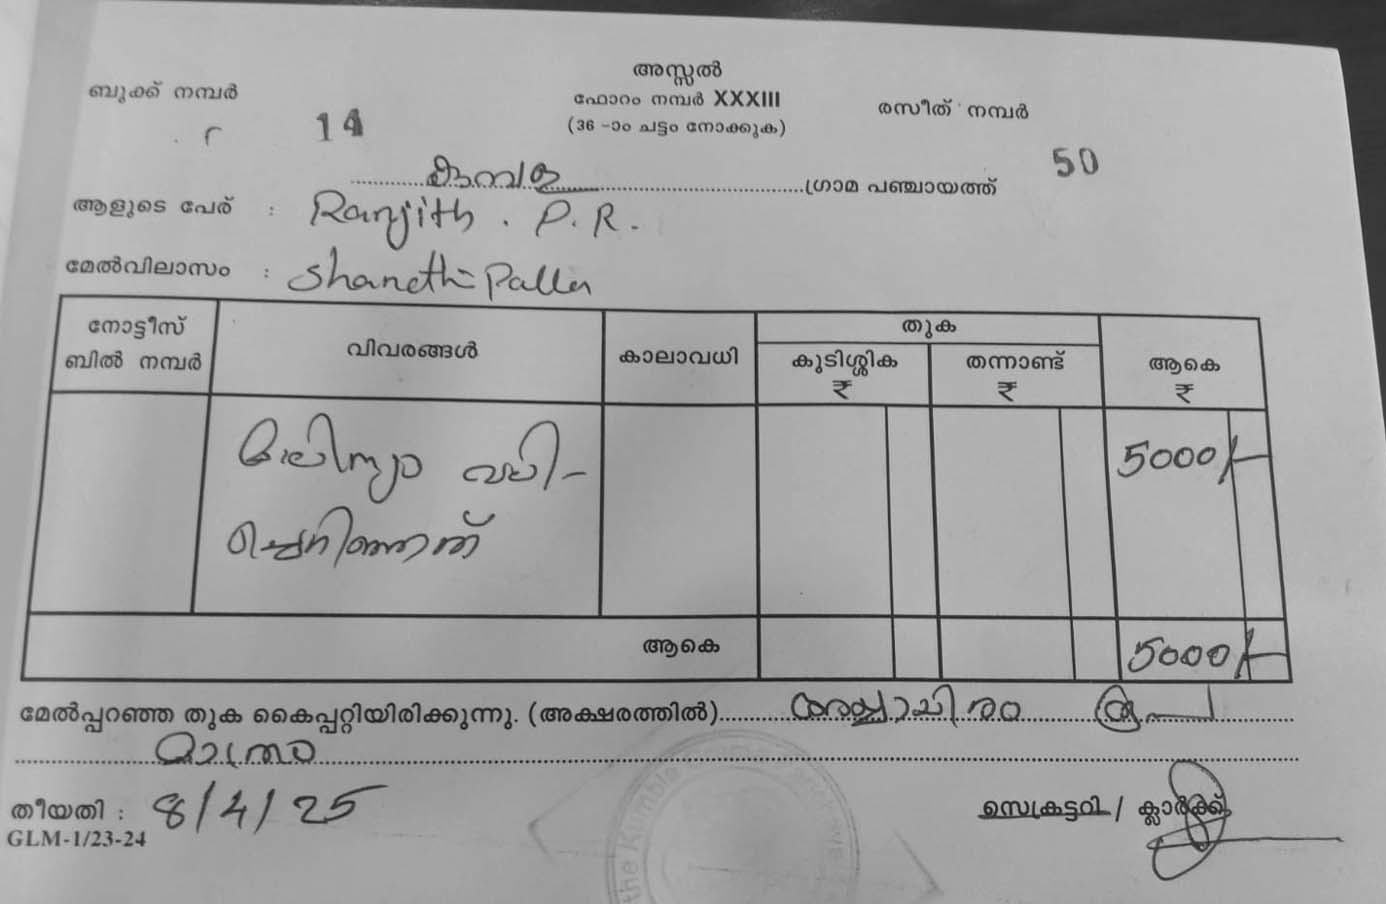 അസ്സൽ
ബുക്ക് നമ്പർ ഫോറം നമ്പർ XXXIII രസീത് നമ്പർ
14 (36 -ാം ചട്ടം നോക്കുക) 50
കുമ്പള ഗ്രാമ പഞ്ചായത്ത്
ആളുടെ പേര് : Ranjith . P. R.
മേൽവിലാസം :
നോട്ടീസ് ബിൽ നമ്പർ വിവരങ്ങൾ കാലാവധി തുക ആകെ ₹
കുടിശ്ശിക ₹ തന്നാണ്ട് ₹
മാലിന്യം വലി- 5000/-
ച്ചെറിഞ്ഞത്
ആകെ 5000/-
മേൽപ്പറഞ്ഞ തുക കൈപ്പറ്റിയിരിക്കുന്നു. (അക്ഷരത്തിൽ) അയ്യായിരം രൂപ
മാത്രം
തീയതി : 8/4/25 സെക്രട്ടറി / ക്ലാർക്ക്
GLM-1/23-24